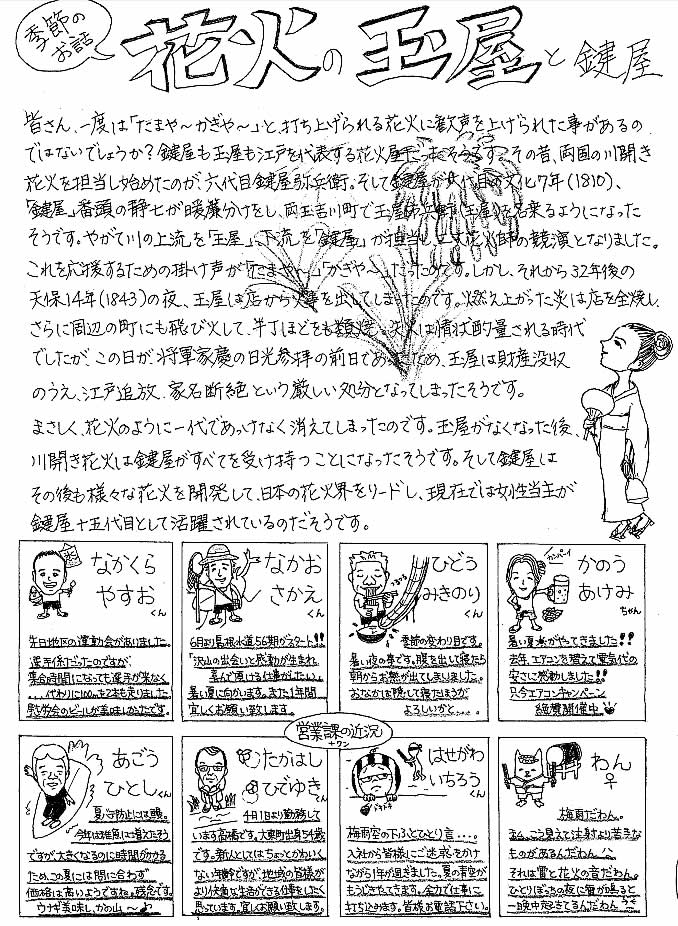 季節の
お話
花火の玉屋と鍵屋
皆さん、一度は「たまや～かぎや～」と、打ち上げられる花火に歓声を上げられた事があるの
ではないでしょうか？鍵屋も玉屋も江戸を代表する花火屋だったそうです。その昔、両国の川開き
花火を担当し始めたのが、六代目鍵屋弥兵衛。そして鍵屋が八代目の文化7年(1810)、
「鍵屋」番頭の静七が暖簾分けをし、両国吉川町で玉屋市兵衛(玉屋)を名乗るようになった
そうです。やがて川の上流を「玉屋」、下流を「鍵屋」が担当し、二大花火師の競演となりました。
これを応援するための掛け声が「たまや～」「かぎや～」だったのです。しかし、それから32年後の
天保14年(1843)の夜、玉屋は店から火事を出してしまったのです。燃え上がった火は店を全焼し、
さらに周辺の町にも飛び火して、半丁ほどをも類焼。失火は情状酌量される時代
でしたが、この日が、将軍家慶の日光参拝の前日であったため、玉屋は財産没収
のうえ、江戸追放、家名断絶という厳しい処分となってしまったそうです。
まさしく、花火のように一代であっけなく消えてしまったのです。玉屋がなくなった後、
川開き花火は鍵屋がすべてを受け持つことになったそうです。そして鍵屋は
その後も様々な花火を開発して、日本の花火界をリードし、現在では女性当主が
鍵屋十五代目として活躍されているのだそうです。
なかくら
やすお
くん
先日地区の運動会がありました。
選手係だったのですが、
集合時間になっても選手が来なく
...代わりに100mを2本も走りました。
慰労会のビールが美味しかったです。
なかお
さかえ
くん
6月より島根水道56期がスタート!!
「沢山の出会いと感動が生まれ、
喜んで頂ける仕事がしたい」
暑い夏に向かいます。また1年間
宜しくお願い致します。
ひどう
みきのり
くん
季節の変わり目です。
暑い夜の事です。腹を出して寝たら
朝からお熱が出てしまいました。
おなかは隠して寝たほうが
よろしいかと…
かのう
あけみ
ちゃん
カンパーイ
暑い夏がやってきました!!
去年、エアコンを替えて電気代の
安さに感動しました!!
只今エアコンキャンペーン
絶賛開催中
営業課の近況
+ワン
あごう
ひとし
くん
夏バテ防止には鰻。
ですが、大きくなるのに時間がかかる
ため、この夏には間に合わず
価格は高いようですね。残念です。
ウナギ美味し、かの山～♪
たかはし
ひでゆき
くん
4月1日より勤務して
います高橋です。大東町出身54歳
です。新人としてはちょっとかわいく
ない年齢ですが、地域の皆様が
より快適な生活ができる仕事をしたく
思っています。宜しくお願い致します。
はせがわ
いちろう
くん
梅雨空の下ふとひとり言...。
入社から皆様にご迷惑をかけ
ながら1年が過ぎました。夏の青空が
もうじきやってきます。全力で仕事に
打ち込みます。皆様お電話下さい。
わん
♀
梅雨だわん。
わん、こう見えて注射より苦手な
ものがあるんだわん^^
それは雷と花火の音だわん。
ひとりぼっちの夜に雷が鳴ると
一晩中起きてるんだわん